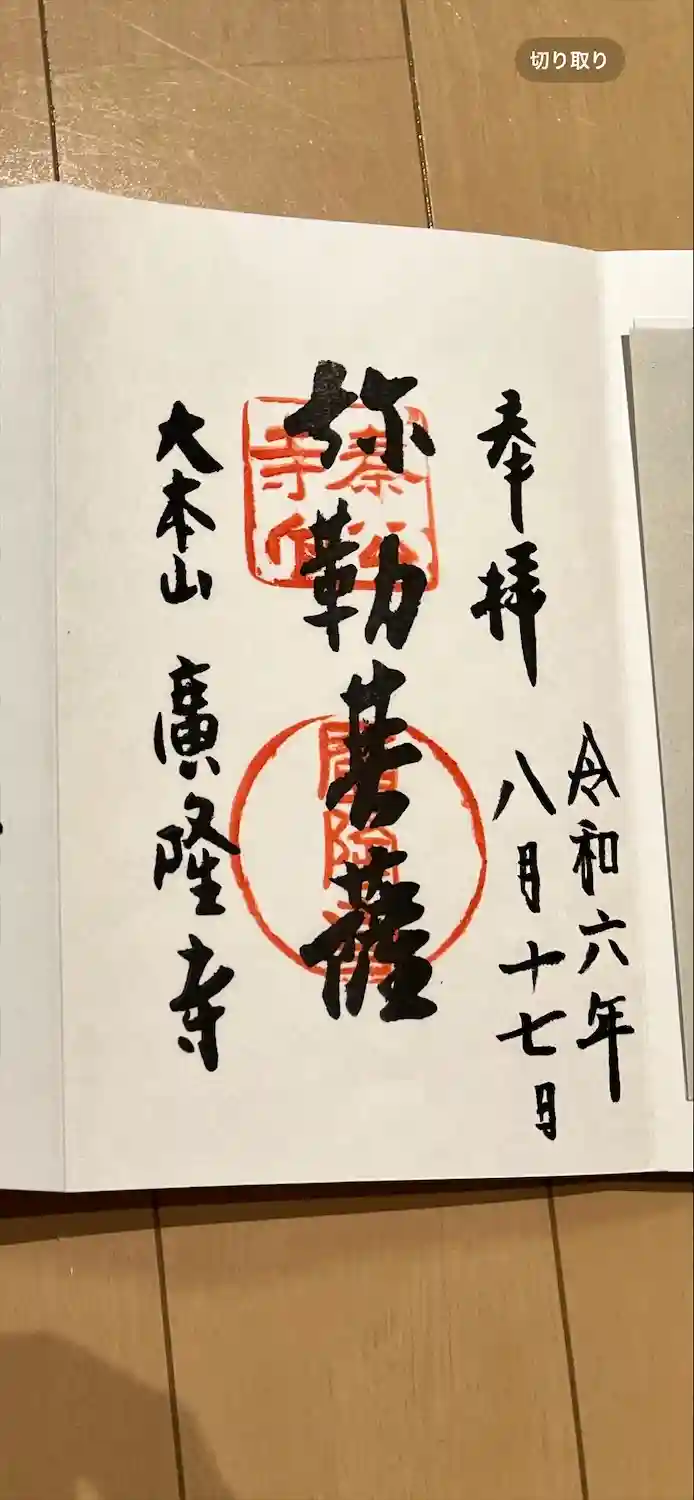 切り取り
奉拝
令和六年
八月十七日
弥勒菩薩
大本山 廣隆寺
廣隆寺